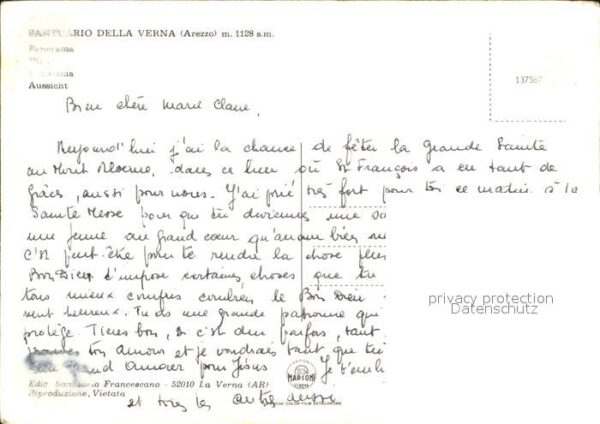 SANTUARIO DELLA VERNA (Arezzo) m. 1128 s.m.
Panorama
Aussicht
137567
Bien chère Marie Claire,
Aujourd'hui j'ai la chance de fêter la Grande Sainte
au Mont Alverne, dans ce lieu où St François a eu tant de
grâces, aussi pour nous. J'ai prié très fort pour toi ce matin à la
Sainte Messe pour que tu deviennes une
une femme au grand cœur qu'aucun
C'est peut-être pour te rendre la chose plus
Bon Dieu t'impose certaines choses que tu
mieux le Bon Dieu
veut heureux. Tu as une grande patronne qui
protège. Tiens bon, si c'est dur parfois, tant
ton amour et je voudrais tant que tu
grand amour pour Jésus. Je
privacy protection
Datenschutz
MARCONI
Ediz. Santuario Francescano - 52010 La Verna (AR)
Riproduzione Vietata
et tous les autres aussi